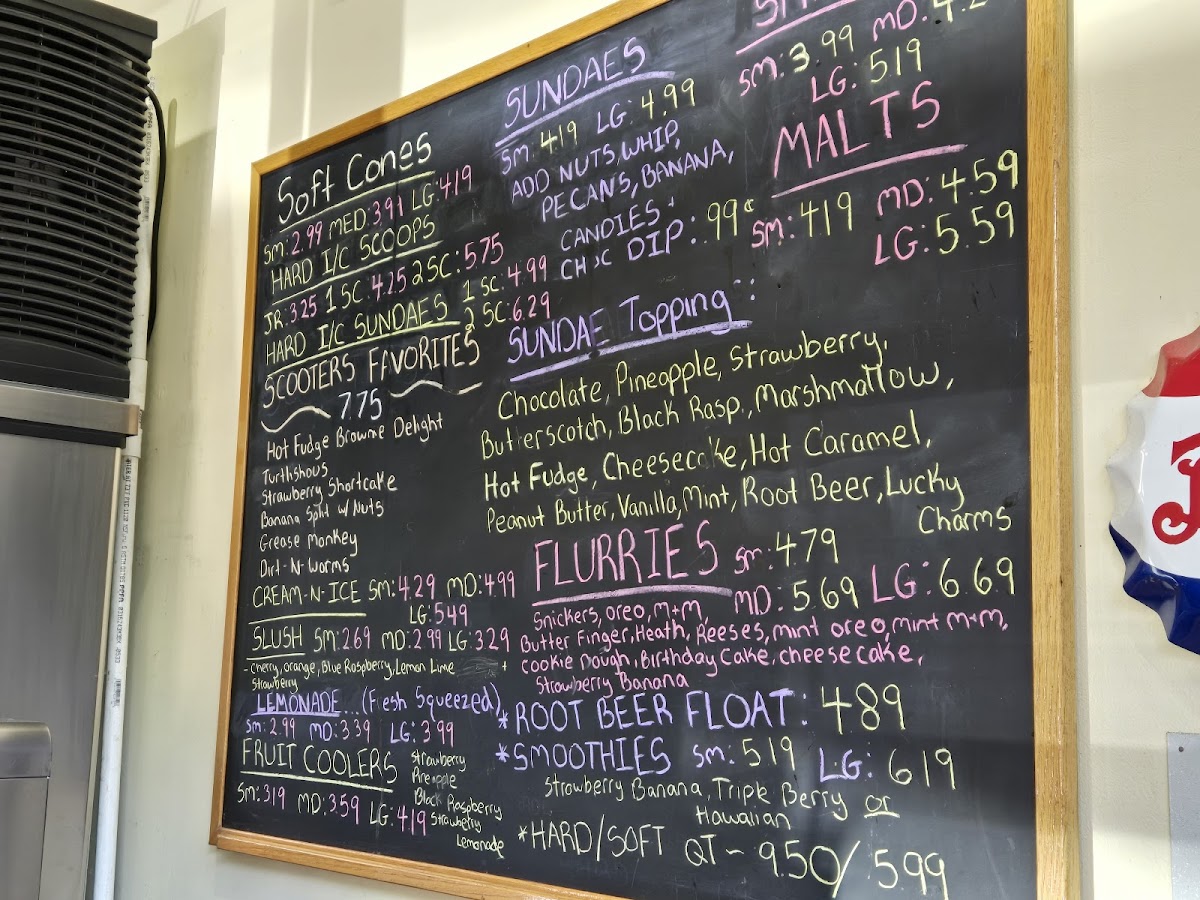 Soft Cones
SM: 2.99 MED: 3.91 LG: 4.19
HARD I/C SCOOPS
JR: 3.25 1 SC: 4.25 2 SC: 5.75
HARD I/C SUNDAES 1 SC: 4.99
2 SC: 6.29
SCOOTERS FAVORITES
7.75
Hot Fudge Brownie Delight
Strawberry Shortcake
Banana Split w/ Nuts
Grease Monkey
Dirt-N-Worms
CREAM-N-ICE SM: 4.29 MD: 4.99
LG: 5.49
SLUSH SM: 2.69 MD: 2.99 LG: 3.29
- Cherry, orange, Blue Raspberry, Lemon Lime
Strawberry
LEMONADE... (Fresh Squeezed)
SM: 2.99 MD: 3.39 LG: 3.99
FRUIT COOLERS
SM: 3.19 MD: 3.59 LG: 4.19
Strawberry
Pineapple
Black Raspberry
Strawberry
Lemonade
SUNDAES
SM: 4.19 LG: 4.99
ADD NUTS, WHIP,
PECANS, BANANA,
CANDIES +
CHOC DIP: .99¢
SM: 3.99 MD:
LG: 5.19
MALTS
SM: 4.19 MD: 4.59
LG: 5.59
SUNDAE Topping:
Chocolate, Pineapple, Strawberry,
Butterscotch, Black Rasp., Marshmallow,
Hot Fudge, Cheesecake, Hot Caramel,
Peanut Butter, Vanilla, Mint, Root Beer, Lucky
Charms
FLURRIES SM: 4.79
MD: 5.69 LG: 6.69
Snickers, oreo, m+m,
Butter Finger, Heath, Reeses, mint oreo, mint m+m,
cookie dough, Birthday Cake, cheesecake,
Strawberry Banana
*ROOT BEER FLOAT: 4.89
*SMOOTHIES SM: 5.19 LG: 6.19
Strawberry Banana, Triple Berry or
Hawaiian
*HARD/SOFT QT - 9.50/5.99